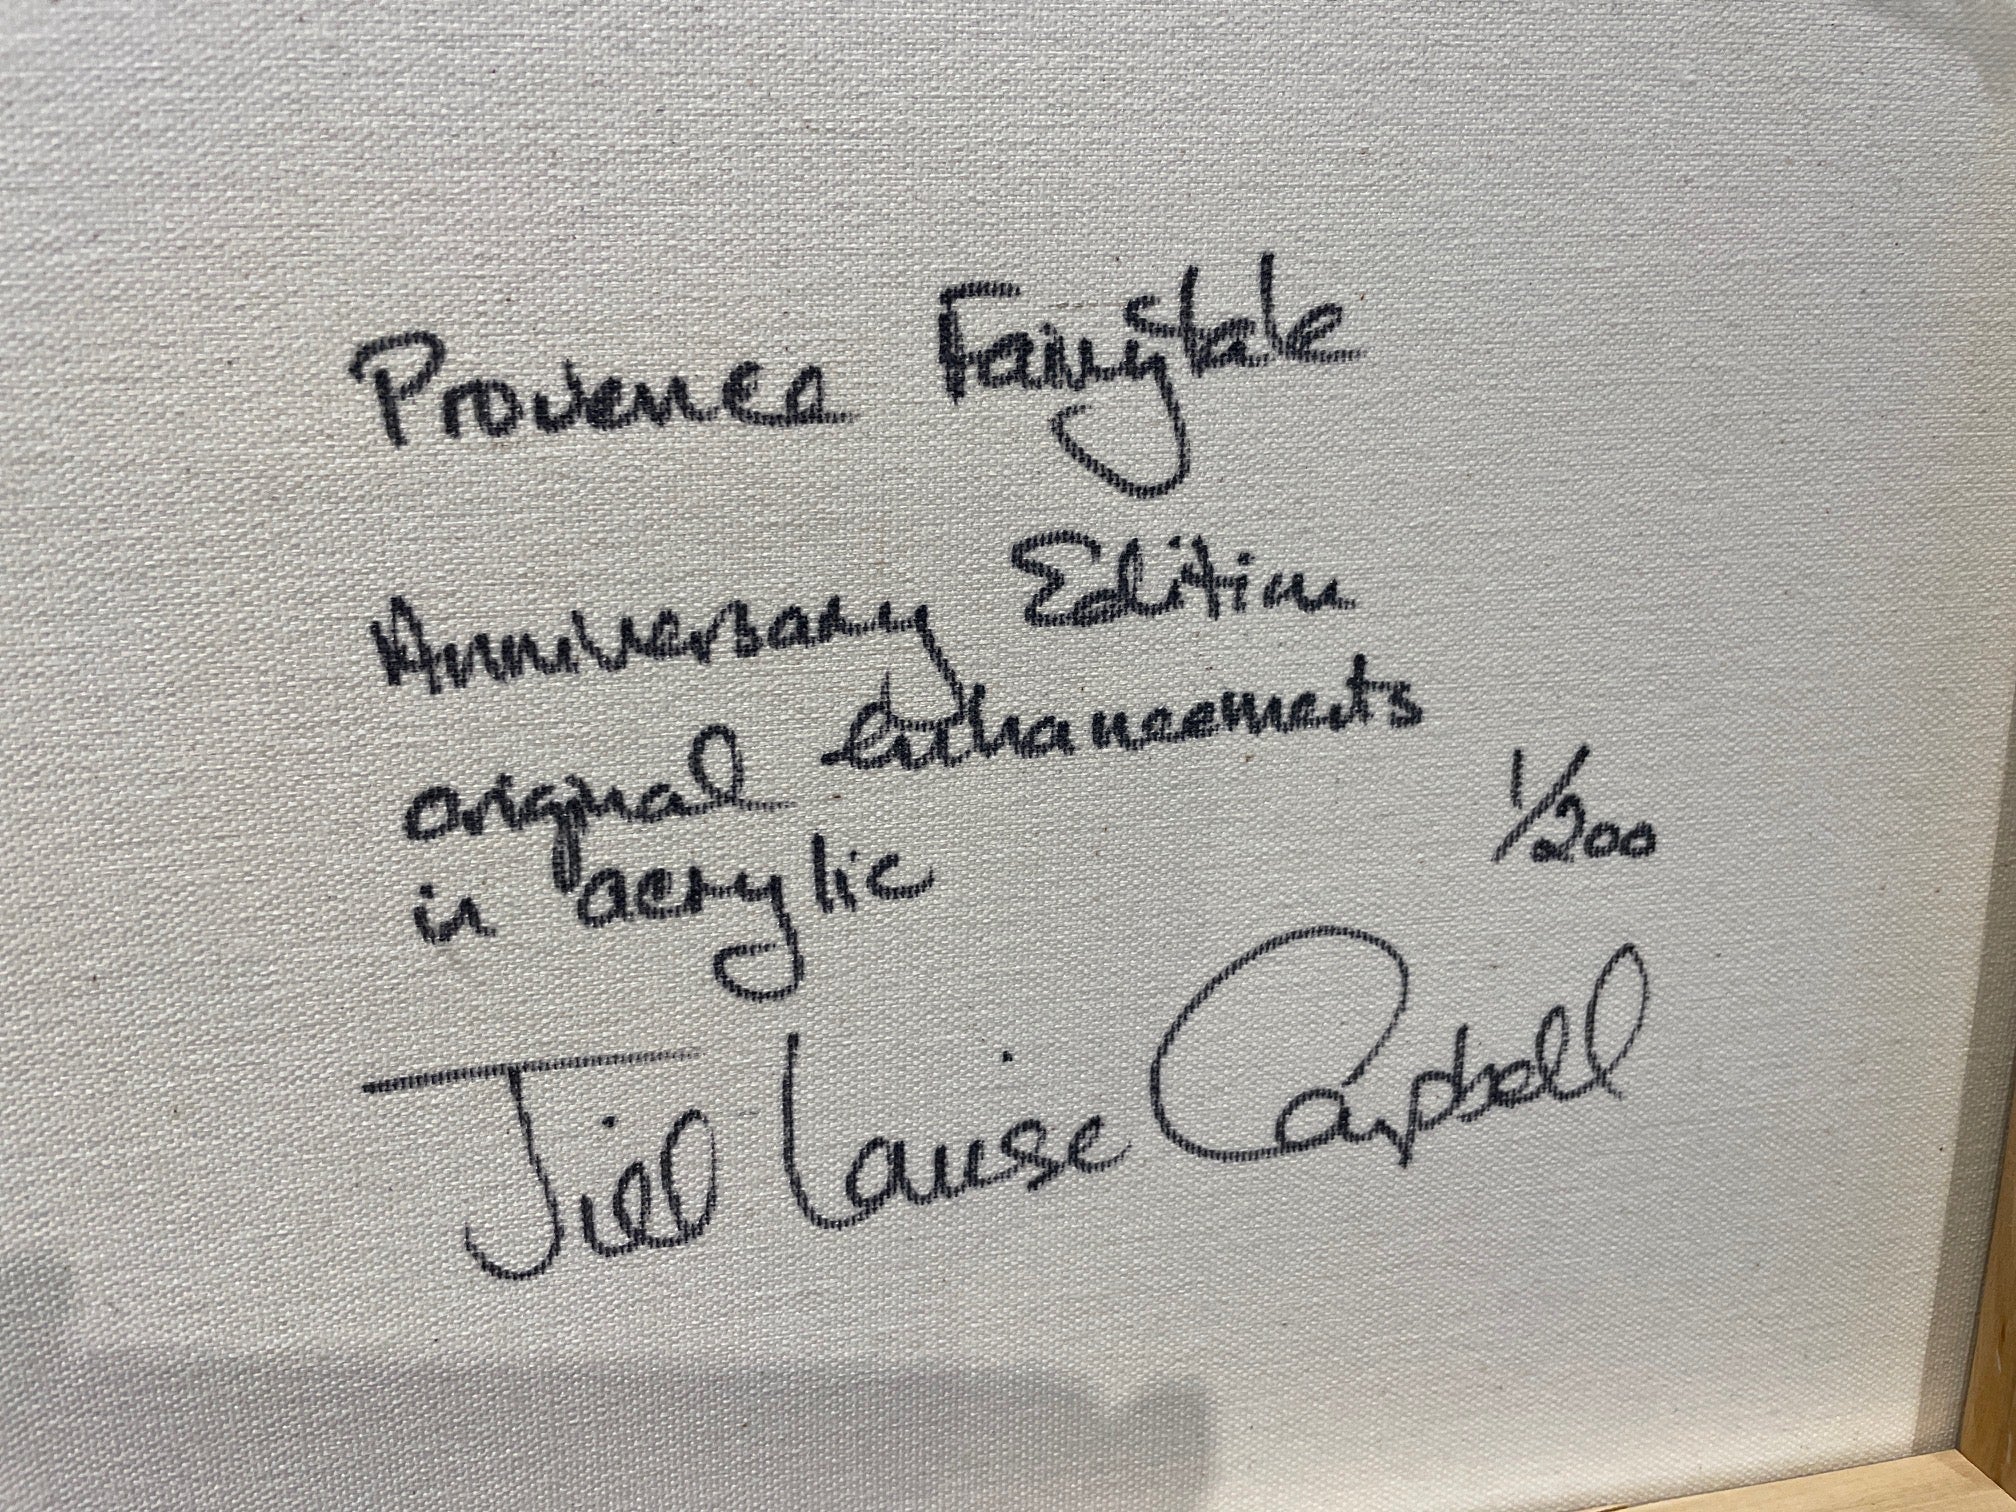 Provence Fairytale
Anniversary Edition
original enhancements
in acrylic
1/200
Jill Louise Campbell